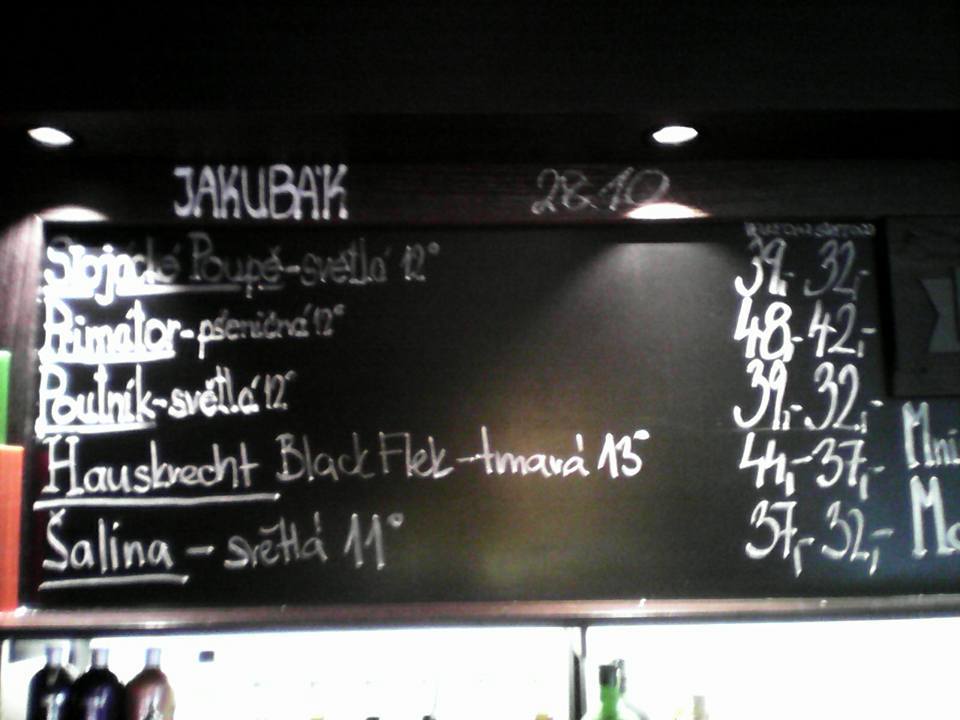 JAKUBÁK 28.10
- světlá 12° 39,- 32,-
Primátor - pšeničná 12° 48,- 42,-
Poutník - světlá 12° 39,- 32,-
Hauskrecht Black Flek - tmavá 13° 44,- 37,-
Šalina - světlá 11° 37,- 32,-